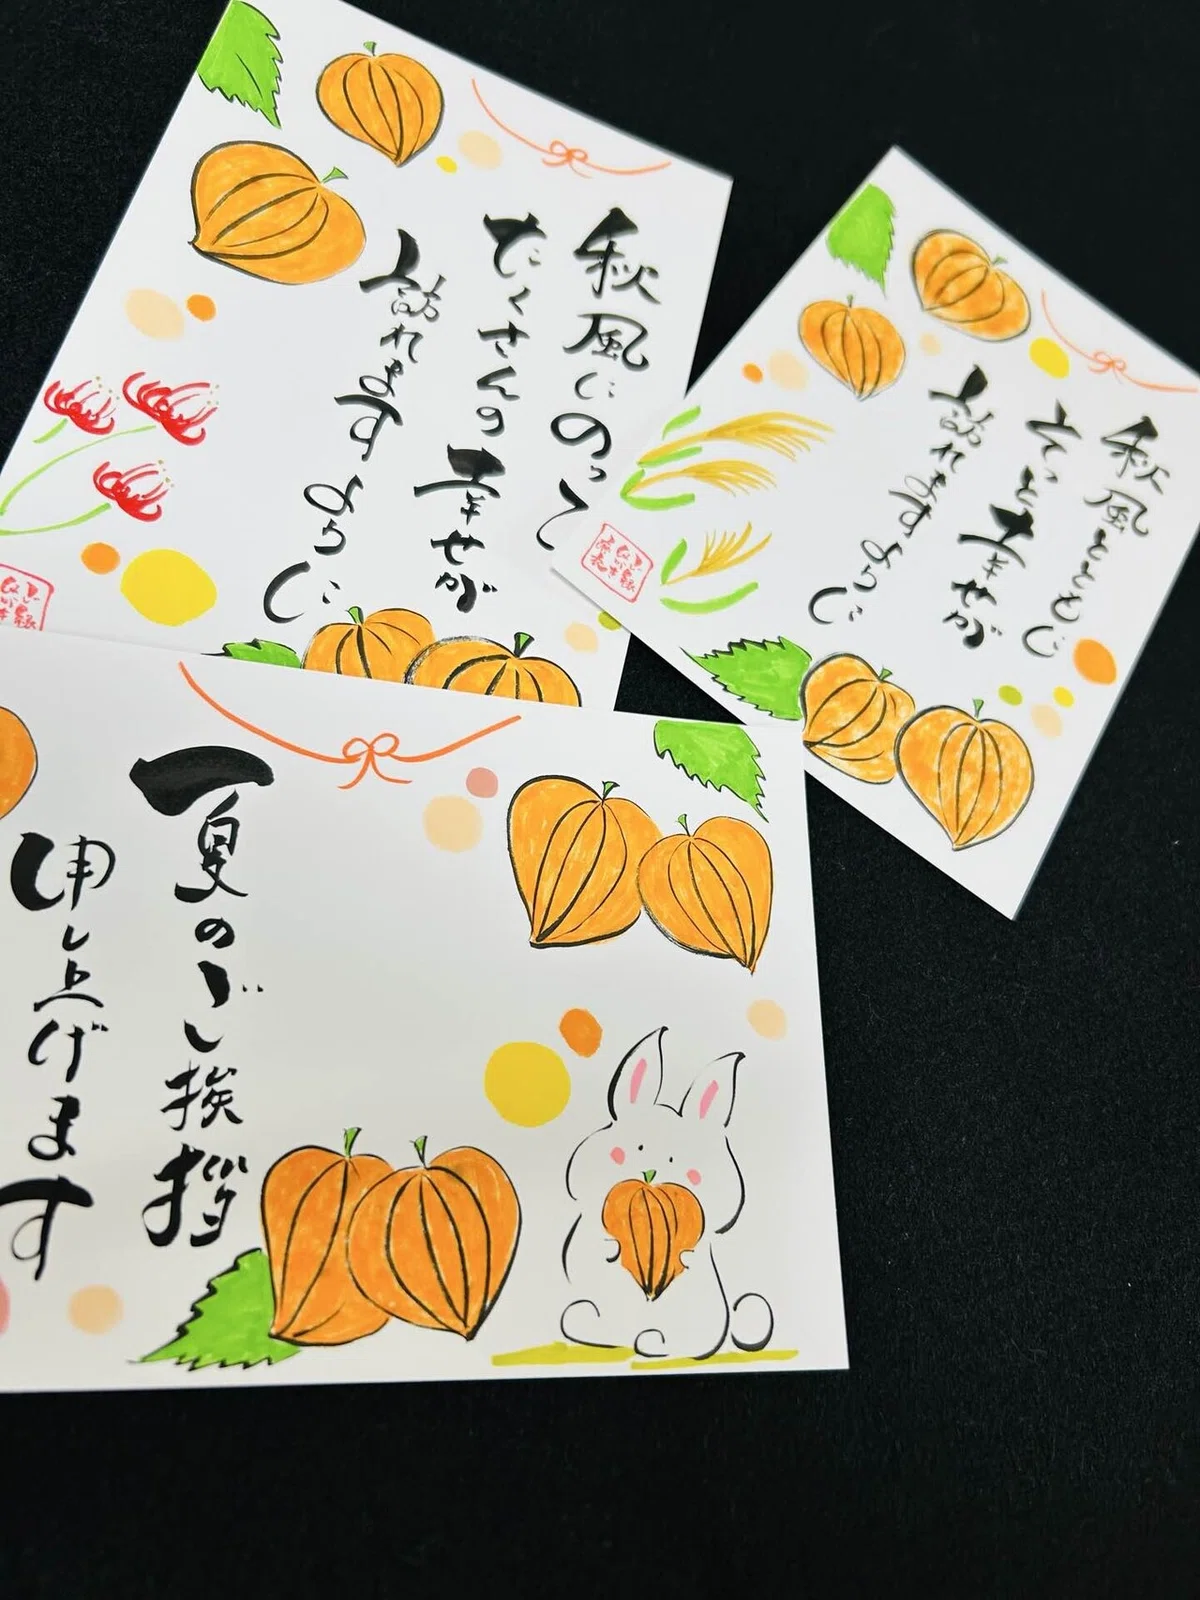 秋風にのって
たくさんの幸せが
訪れますように
秋風とともに
そっと幸せが
訪れますように
夏のご挨拶
申し上げます